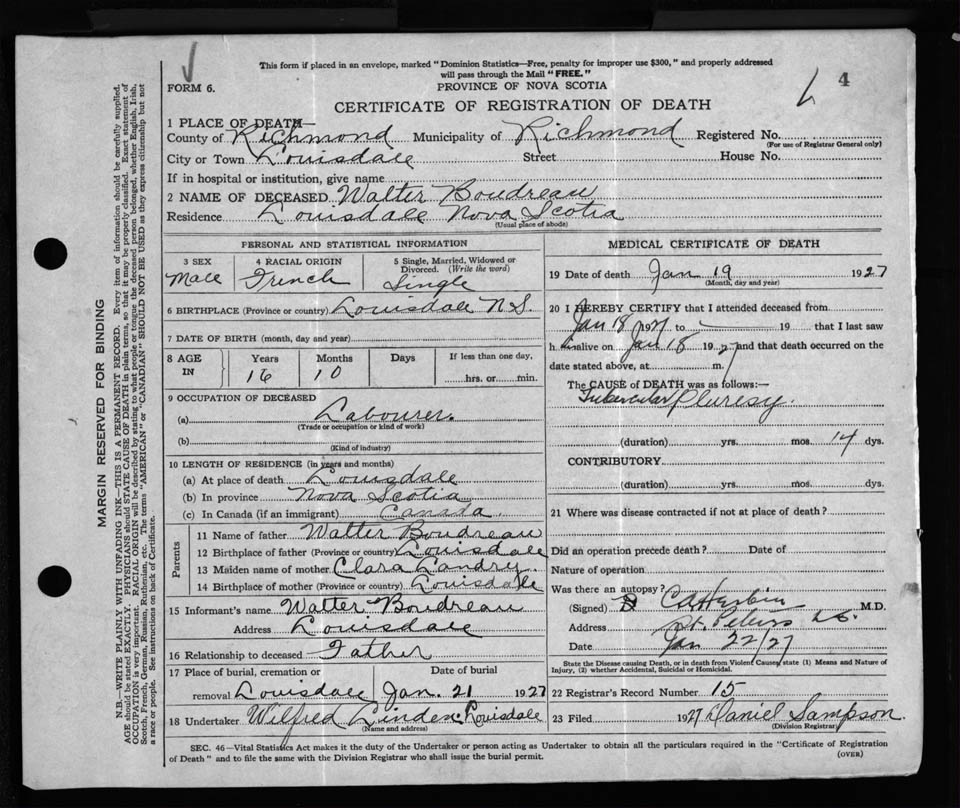 This form if placed in an envelope, marked "Dominion Statistics—Free, penalty for improper use $300," and properly addressed
will pass through the Mail "FREE."
FORM 6.
PROVINCE OF NOVA SCOTIA
4
CERTIFICATE OF REGISTRATION OF DEATH
1 PLACE OF DEATH—
County of Richmond Municipality of Richmond Registered No.
(For use of Registrar General only)
City or Town Louisdale Street House No.
If in hospital or institution, give name
2 NAME OF DECEASED Walter Boudreau
Residence Louisdale Nova Scotia
(Usual place of abode)
PERSONAL AND STATISTICAL INFORMATION
3 SEX 4 RACIAL ORIGIN 5 Single, Married, Widowed or
Divorced. (Write the word)
Male French Single
6 BIRTHPLACE (Province or country) Louisdale N.S.
7 DATE OF BIRTH (month, day and year)
8 AGE IN Years Months Days If less than one day,
16 10 hrs. or min.
9 OCCUPATION OF DECEASED
(a) Labourer.
(Trade or occupation or kind of work)
(b)
(Kind of industry)
10 LENGTH OF RESIDENCE (in years and months)
(a) At place of death Louisdale
(b) In province Nova Scotia
(c) In Canada (if an immigrant) Canada.
Parents
11 Name of father Walter Boudreau
12 Birthplace of father (Province or country) Louisdale
13 Maiden name of mother Clara Landry
14 Birthplace of mother (Province or country) Louisdale
15 Informant's name Walter Boudreau
Address Louisdale
16 Relationship to deceased Father
17 Place of burial, cremation or Date of burial
removal Louisdale Jan. 21 1927
18 Undertaker Wilfred Linden Louisdale
(Name and address)
MEDICAL CERTIFICATE OF DEATH
19 Date of death Jan 19 1927
(Month, day and year)
20 I HEREBY CERTIFY that I attended deceased from
Jan 18 1927 to 19 that I last saw
h alive on Jan 18 1927 and that death occurred on the
date stated above, at m.
The CAUSE of DEATH was as follows:—
Tubercular Pluresy.
(duration) yrs. mos. 14 dys.
CONTRIBUTORY
(duration) yrs. mos. dys.
21 Where was disease contracted if not at place of death?
Did an operation precede death? Date of
Nature of operation
Was there an autopsy?
(Signed) M.D.
Address St. Peters
Date Jan 22/27
State the Disease causing Death, or in death from Violent Causes, state (1) Means and Nature of
Injury, (2) whether Accidental, Suicidal or Homicidal.
22 Registrar's Record Number 15
23 Filed 1927 Daniel Sampson.
(Division Registrar)
SEC. 46—Vital Statistics Act makes it the duty of the Undertaker or person acting as Undertaker to obtain all the particulars required in the "Certificate of Registration
of Death" and to file the same with the Division Registrar who shall issue the burial permit.
(OVER)
MARGIN RESERVED FOR BINDING
N.B.—WRITE PLAINLY WITH UNFADING INK—THIS IS A PERMANENT RECORD. Every item of information should be carefully supplied.
AGE should be stated EXACTLY. PHYSICIANS should STATE CAUSE OF DEATH in plain terms, so that it may be properly classified. Exact statement of
OCCUPATION is very important. RACIAL ORIGIN will be described by stating to what people or tongue the deceased person belonged, whether English, Irish,
Scotch, French, German, Russian, Ruthenian, etc. The terms "AMERICAN" or "CANADIAN" SHOULD NOT BE USED as they express citizenship but not
a race or people. See instructions on back of Certificate.